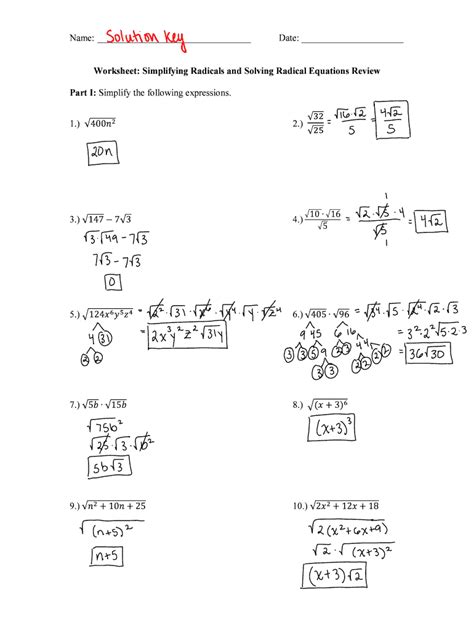 Name: Solution Key Date:
Worksheet: Simplifying Radicals and Solving Radical Equations Review
Part I: Simplify the following expressions.
1.) √400n²
20n
2.) √32/√25 = √16·√2/5 = 4√2/5
3.) √147 − 7√3
√3·√49 − 7√3
7√3 − 7√3
0
4.) √10·√16/√5 = √2·√5·4/√5 = 4√2
1
1
5.) √124x⁶y⁵z⁴ = √2²·√31·√x⁶·√y⁴·√y·√z⁴
4 31
2 2
= 2x³y²z²√31y
6.) √405·√96 = √3⁴·√5·√2⁴·√2·√3
9 45 6 16
= 3²·2²√5·2·3
3 3 5 9 2 3 4 4
3 3 2 2 2 2
= 36√30
7.) √5b·√15b
√75b²
√25·√3·√b²
5b√3
8.) √(x + 3)⁶
(x+3)³
9.) √n² + 10n + 25
√(n+5)²
n+5
10.) √2x² + 12x + 18
√2(x²+6x+9)
√2·√(x+3)²
(x+3)√2